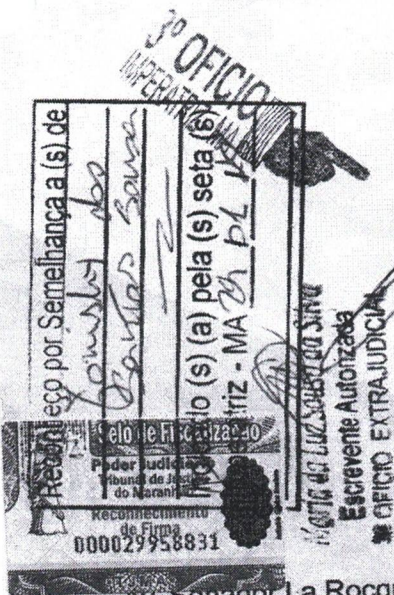 3º OFICIO
IMPERATRIZ - MA
Reconheço por Semelhança a (s) de
dos
Santos Sousa
do (s) (a) pela (s) seta (s)
triz - MA 29 01
Maria da Luz Sousa da Silva
Escrevente Autorizada
3º OFICIO EXTRAJUDICIAL
Selo de Fiscalização
Poder Judiciário
Tribunal de Justiça
do Maranhão
Reconhecimento
de Firma
000029958831
Senador La Rocque